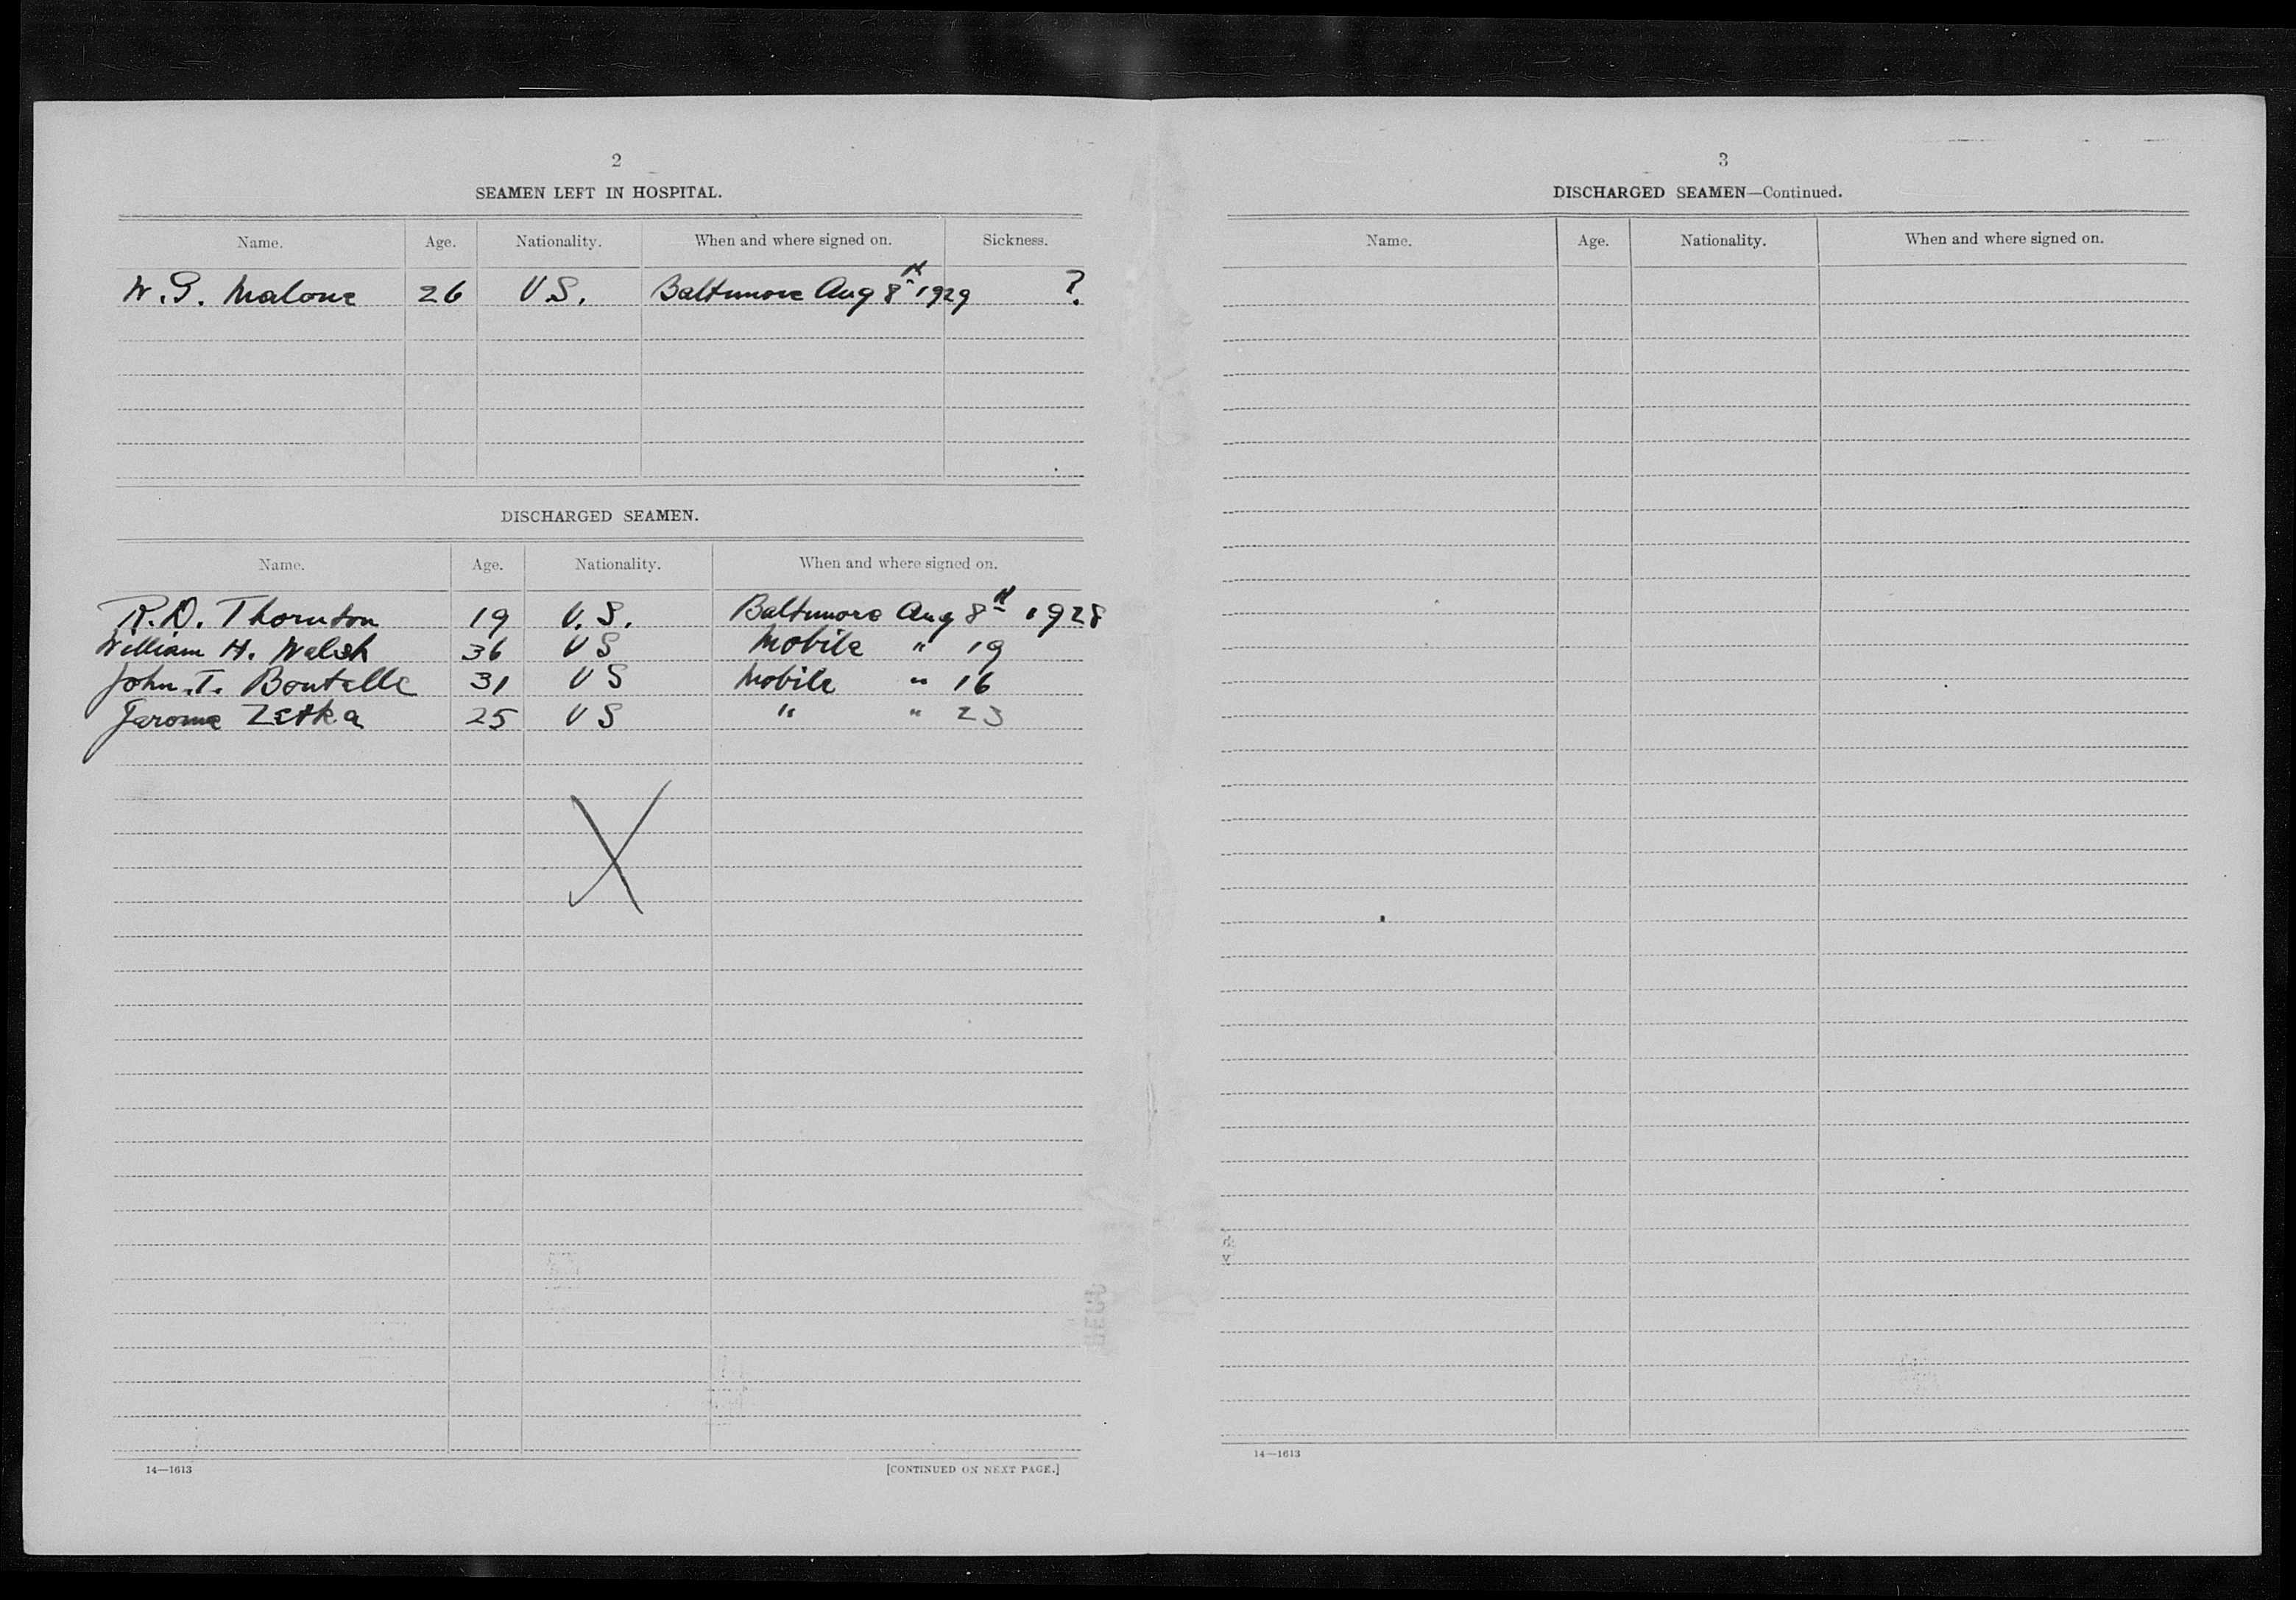 2
SEAMEN LEFT IN HOSPITAL.
Name. Age. Nationality. When and where signed on. Sickness.
W. G. Malone 26 U.S. Baltimore Aug 8th 1929 ?
DISCHARGED SEAMEN.
Name. Age. Nationality. When and where signed on.
R. D. Thornton 19 U.S. Baltimore Aug 8th 1928
William H. Walsh 36 US Mobile " 19
John T. Boutelle 31 US Mobile " 16
Jerome Zetka 25 US " " 23
X
14—1613 [CONTINUED ON NEXT PAGE.]
3
DISCHARGED SEAMEN—Continued.
Name. Age. Nationality. When and where signed on.
14—1613